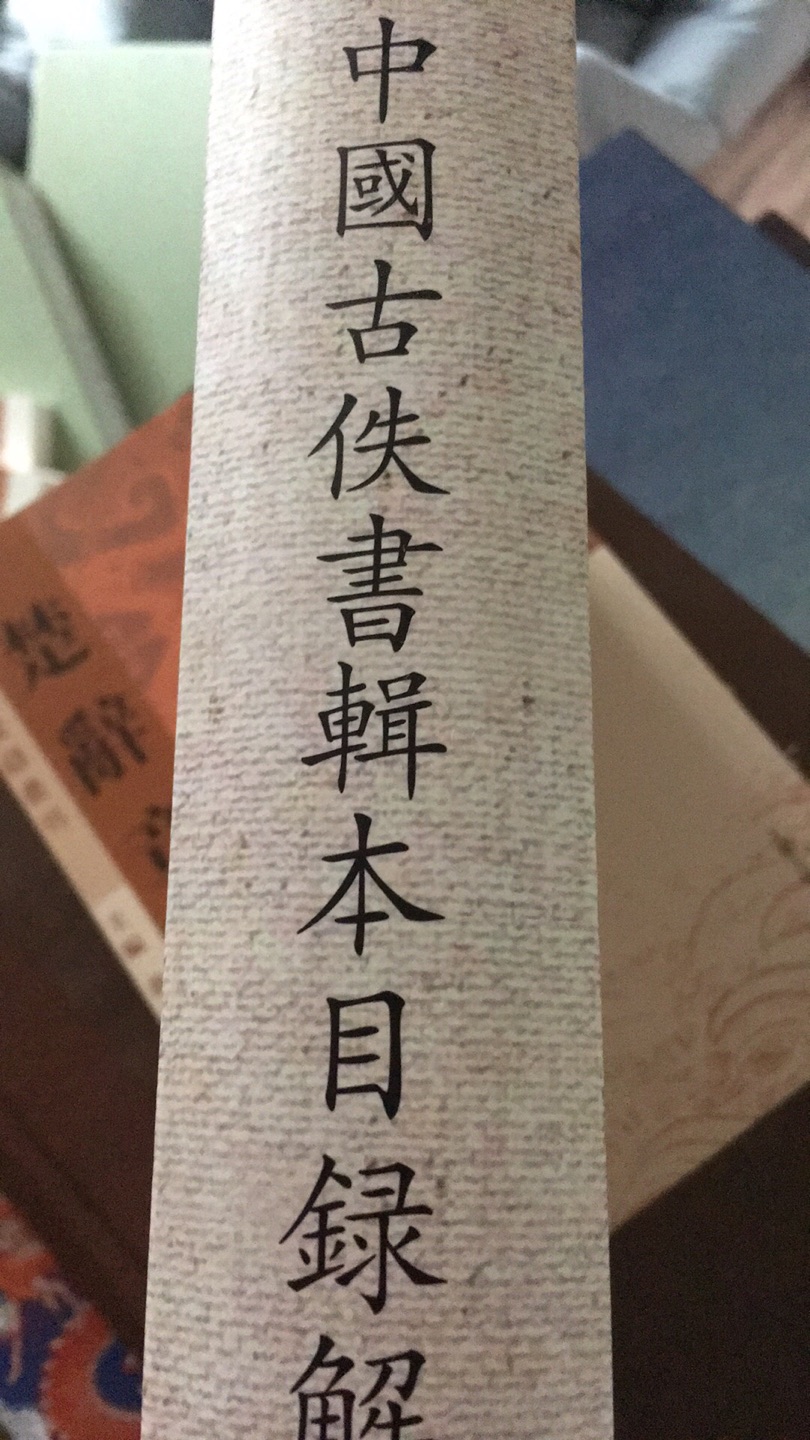 中國古佚書輯本目録解
楚辭